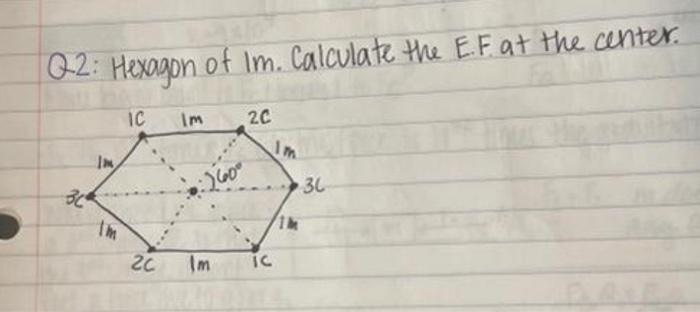 Q2: Hexagon of 1m. Calculate the E.F. at the center.
1C 1m 2C
1m 1m
60°
3C 3C
1m 1m
2C 1m 1C